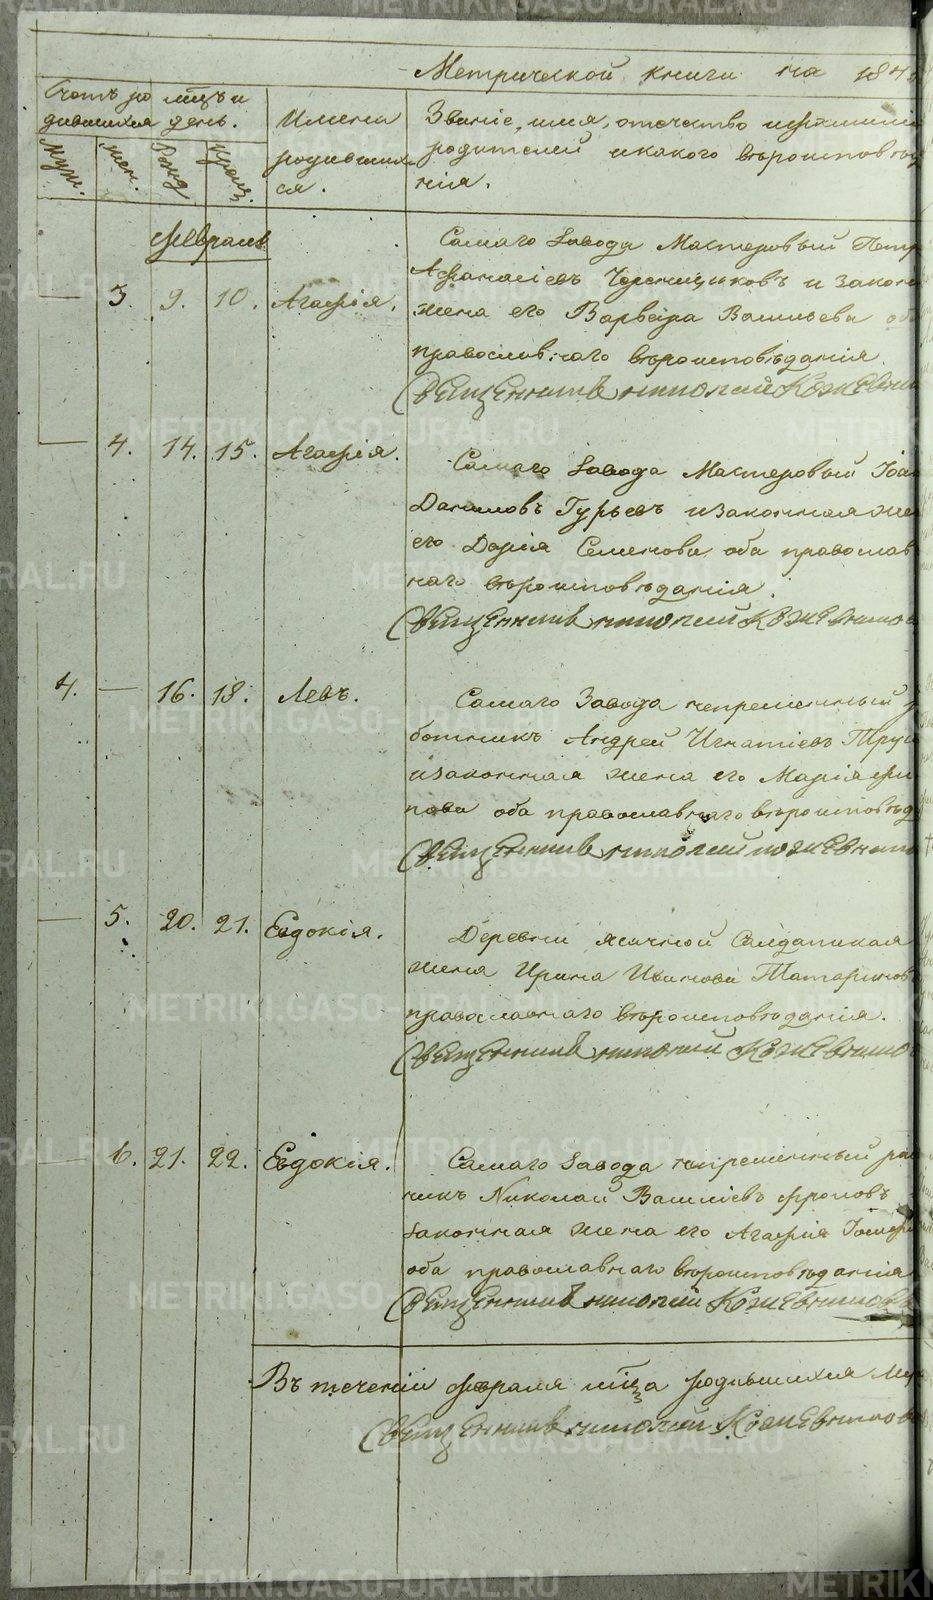 Метрической книги на 184
Счетъ ро
дившихся
мѣцъ и
день.
Имена
родивших
ся.
Званіе, имя, отечество и фамилія
родителей и какого вѣроисповѣда
нія.
муж.
жен.
рожд
крещ.
Февраль
— 3. 9. 10. Агафія.
Самаго Завода Мастеровый Петр
Афанасіевъ и закон
жена его Варвара Васильева оба
православнаго вѣроисповѣданія.
Священникъ Николай Кожевни
— 4. 14. 15. Агафія.
Самаго Завода Мастеровый Іоа
Даниловъ Гурьевъ и законная же
его Дарія Семенова оба православ
наго вѣроисповѣданія.
Священникъ Николай Кожевников
4. — 16. 18. Левъ.
Самаго Завода непременный р
ботникъ Андрей Игнатіевъ Трус
и законная жена его Марія Фи
пова оба православнаго вѣроисповѣд
Священникъ Николай Кожевнико
— 5. 20. 21. Евдокія.
Деревни Солдатская
жена Ирина Иванова Татаринов
православнаго вѣроисповѣданія.
Священникъ Николай Кожевнико
— 6. 21. 22. Евдокія.
Самаго Завода непременный ра
никъ Николай Василіевъ Фроловъ
законная жена его Агафія Іосиф
оба православнаго вѣроисповѣданія
Священникъ Николай Кожевниковъ
Въ теченіи февраля мѣца родившихся
Священникъ Николай Кожевников
METRIKI.GASO-URAL.RU